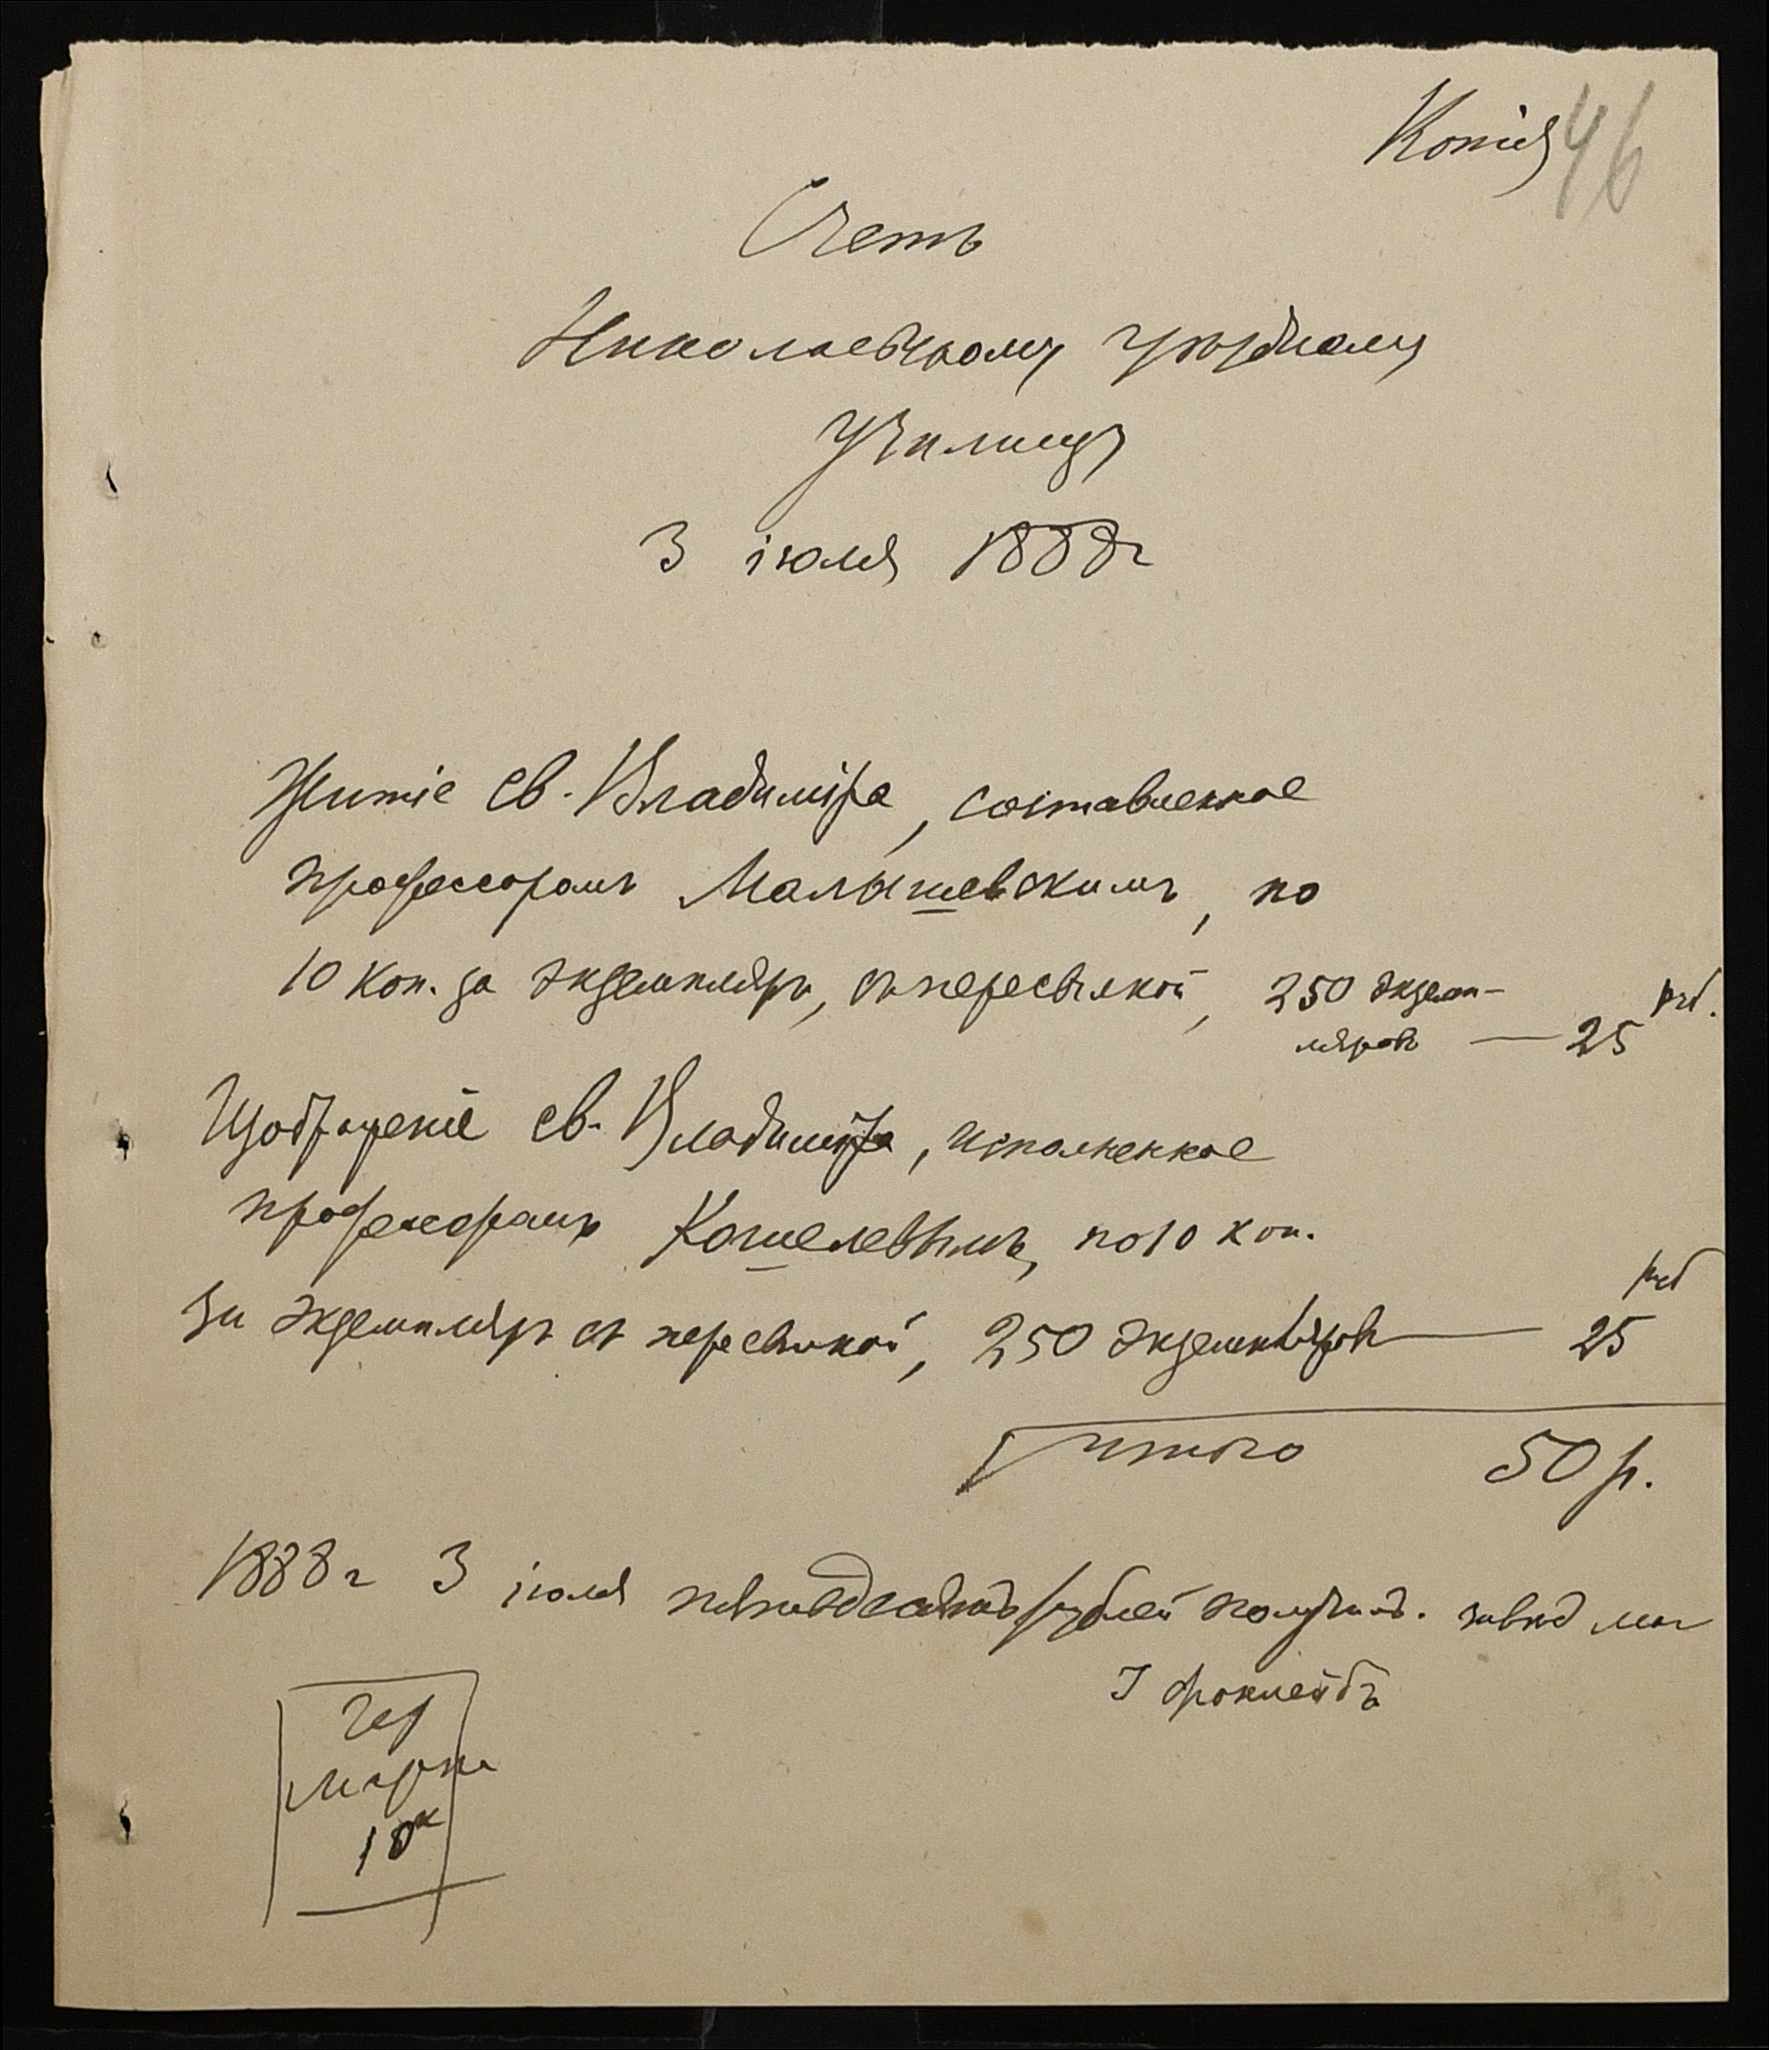 Копія 46
Счетъ
Николаевскому уѣздному
училищу
3 іюля 1888 г
Житіе св. Владиміра, составленное
профессоромъ Малышевскимъ, по
10 коп. за экземпляръ, съ пересылкой, 250 экземп-
ляровъ — 25 руб.
Изображеніе св. Владиміра, исполненное
профессоромъ Кошелевымъ, по 10 коп.
за экземпляръ съ пересылкой, 250 экземпляровъ — 25 руб
Итого 50 р.
1888 г 3 іюля пятьдесятъ рублей получилъ. завѣд маг
І
гер
марка
10 к